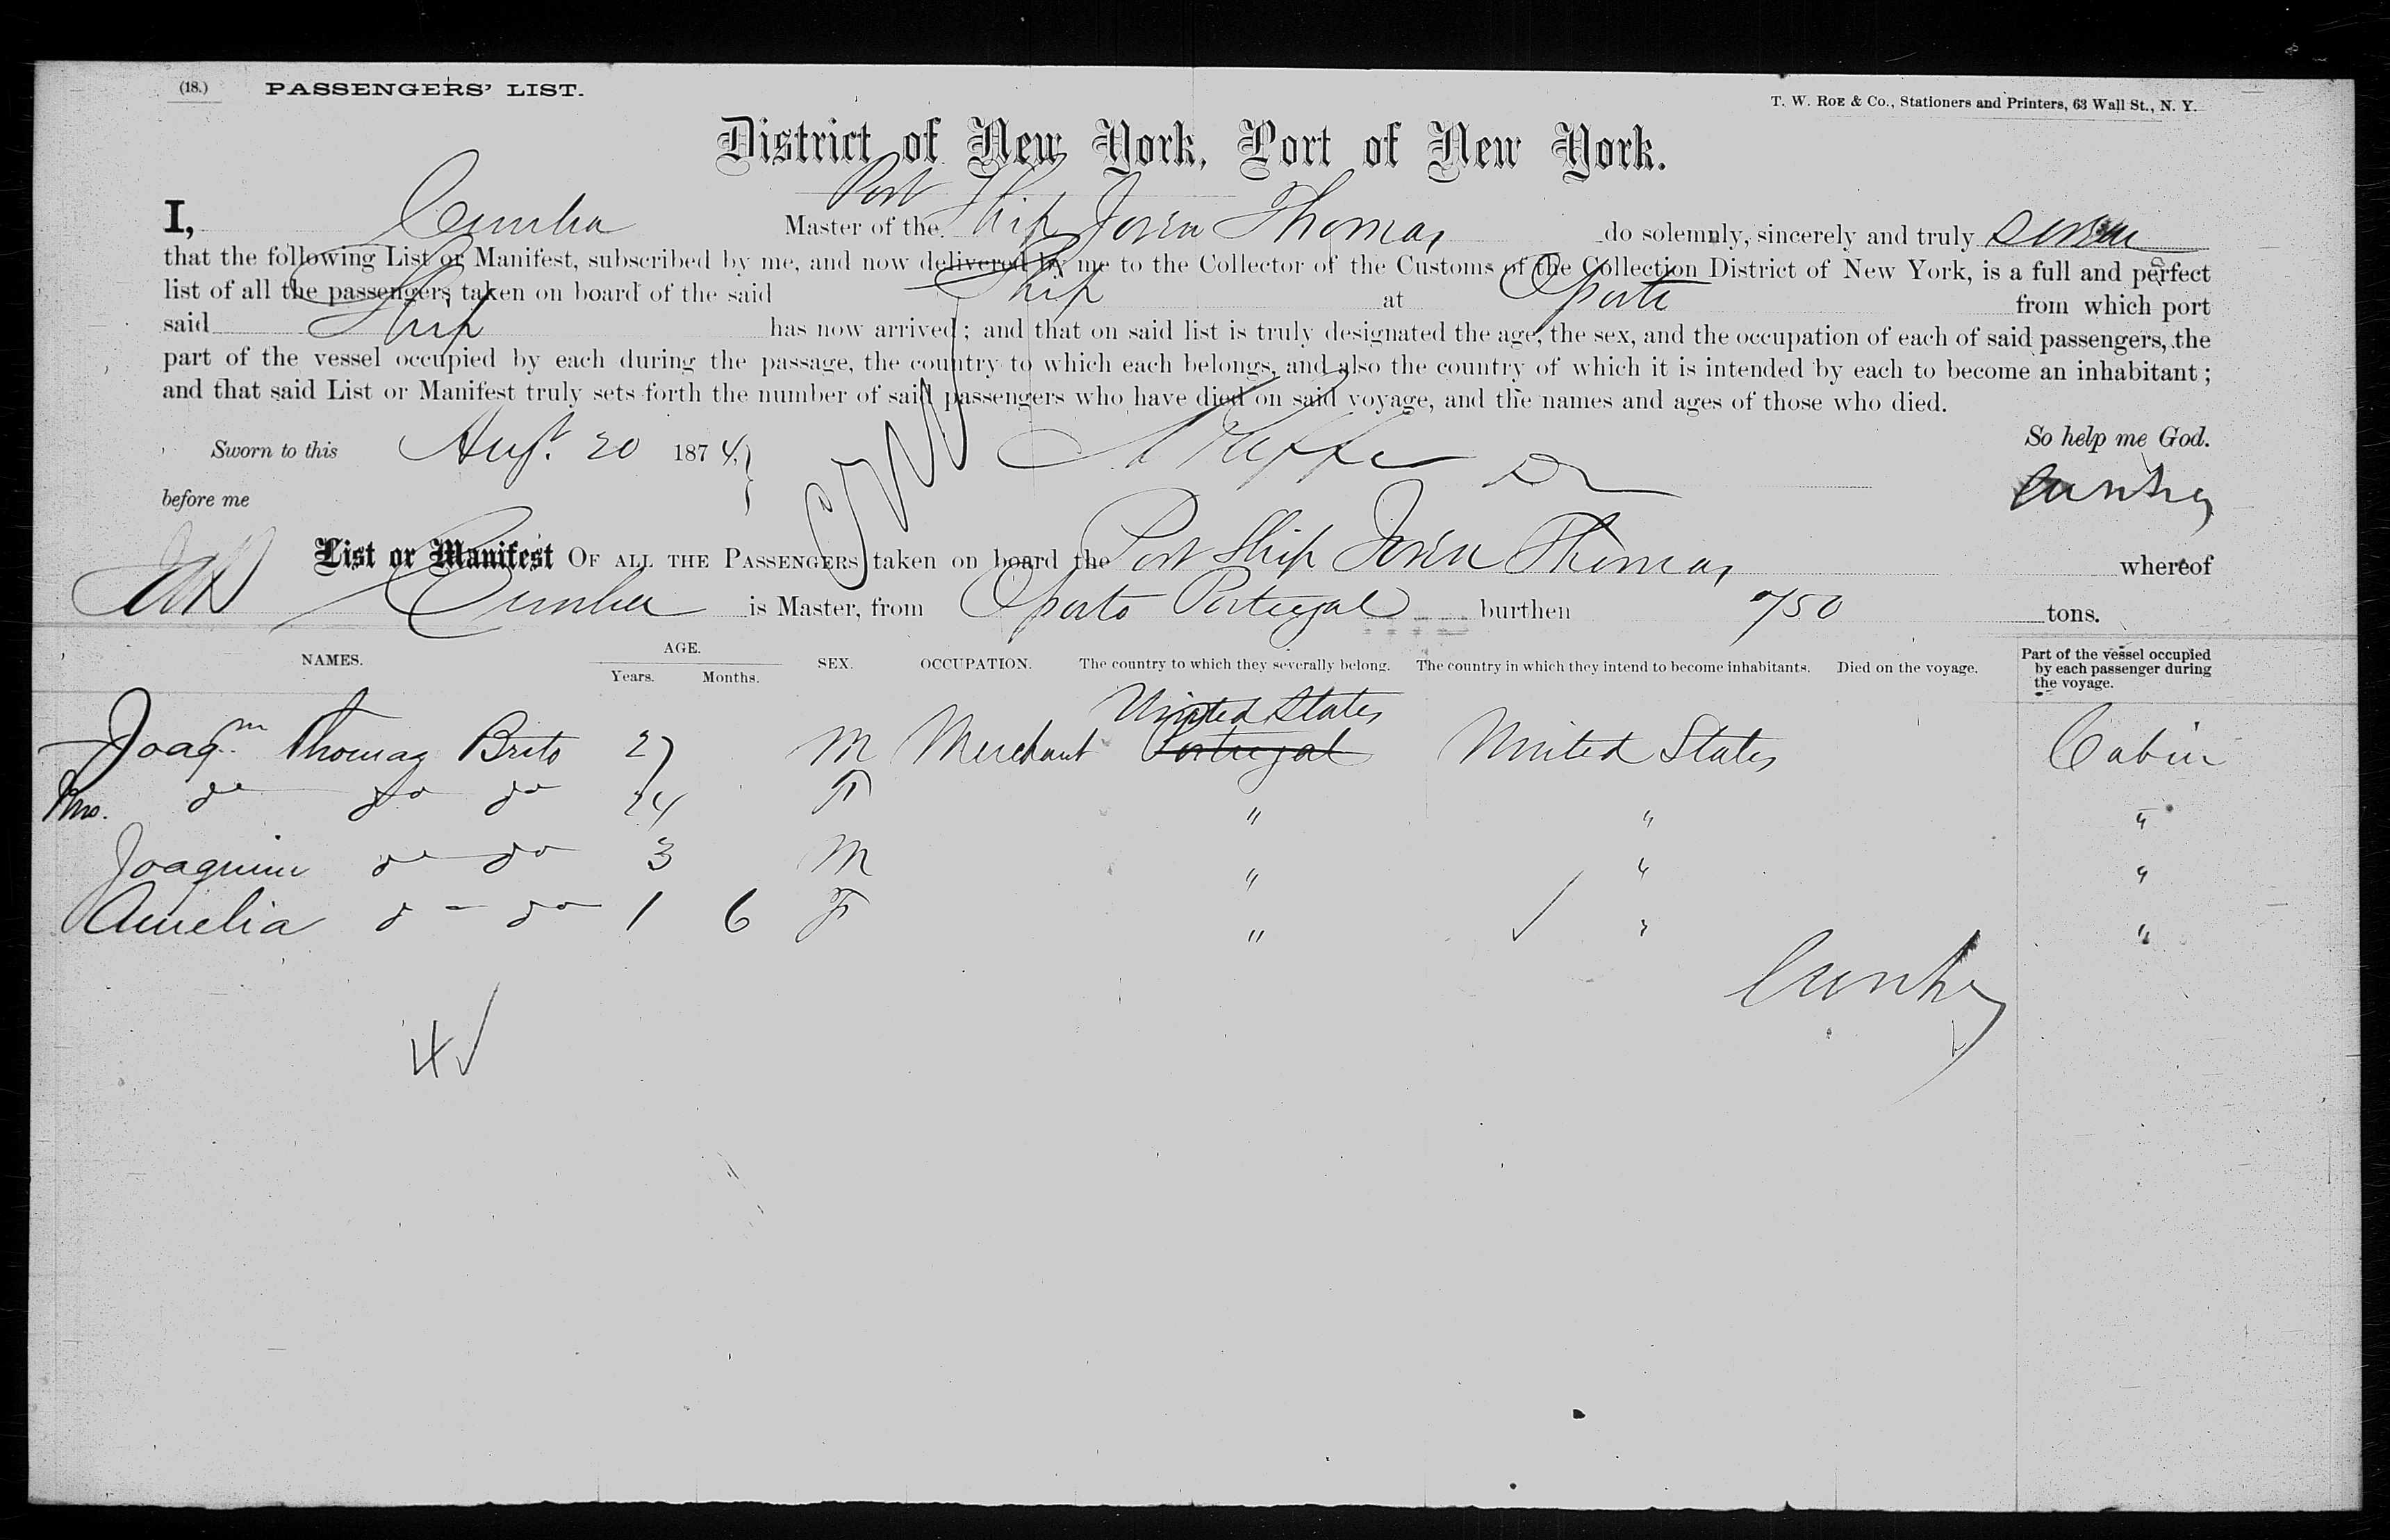 (18.) PASSENGERS' LIST.
T. W. ROE & Co., Stationers and Printers, 63 Wall St., N. Y.
District of New York, Port of New York.
Port
I, Cunha Master of the Ship Joven Thomas do solemnly, sincerely and truly swear
that the following List or Manifest, subscribed by me, and now delivered by me to the Collector of the Customs of the Collection District of New York, is a full and perfect
list of all the passengers taken on board of the said Ship at Oporto from which port
said Ship has now arrived; and that on said list is truly designated the age, the sex, and the occupation of each of said passengers, the
part of the vessel occupied by each during the passage, the country to which each belongs, and also the country of which it is intended by each to become an inhabitant;
and that said List or Manifest truly sets forth the number of said passengers who have died on said voyage, and the names and ages of those who died.
So help me God.
Sworn to this Augt. 20 1874
Cunha
before me
List or Manifest OF ALL THE PASSENGERS taken on board the Port Ship Joven Thomas whereof
Cunha is Master, from Oporto Portugal burthen 750 tons.
NAMES. AGE. SEX. OCCUPATION. The country to which they severally belong. The country in which they intend to become inhabitants. Died on the voyage. Part of the vessel occupied by each passenger during the voyage.
Years. Months.
United States
Joaqm Thomaz Brito 27 M Merchant Portugal United States Cabin
Mrs. do do do 24 F " " "
Joaquim do do 3 M " " "
Amelia do do 1 6 F " " "
Cunha
4